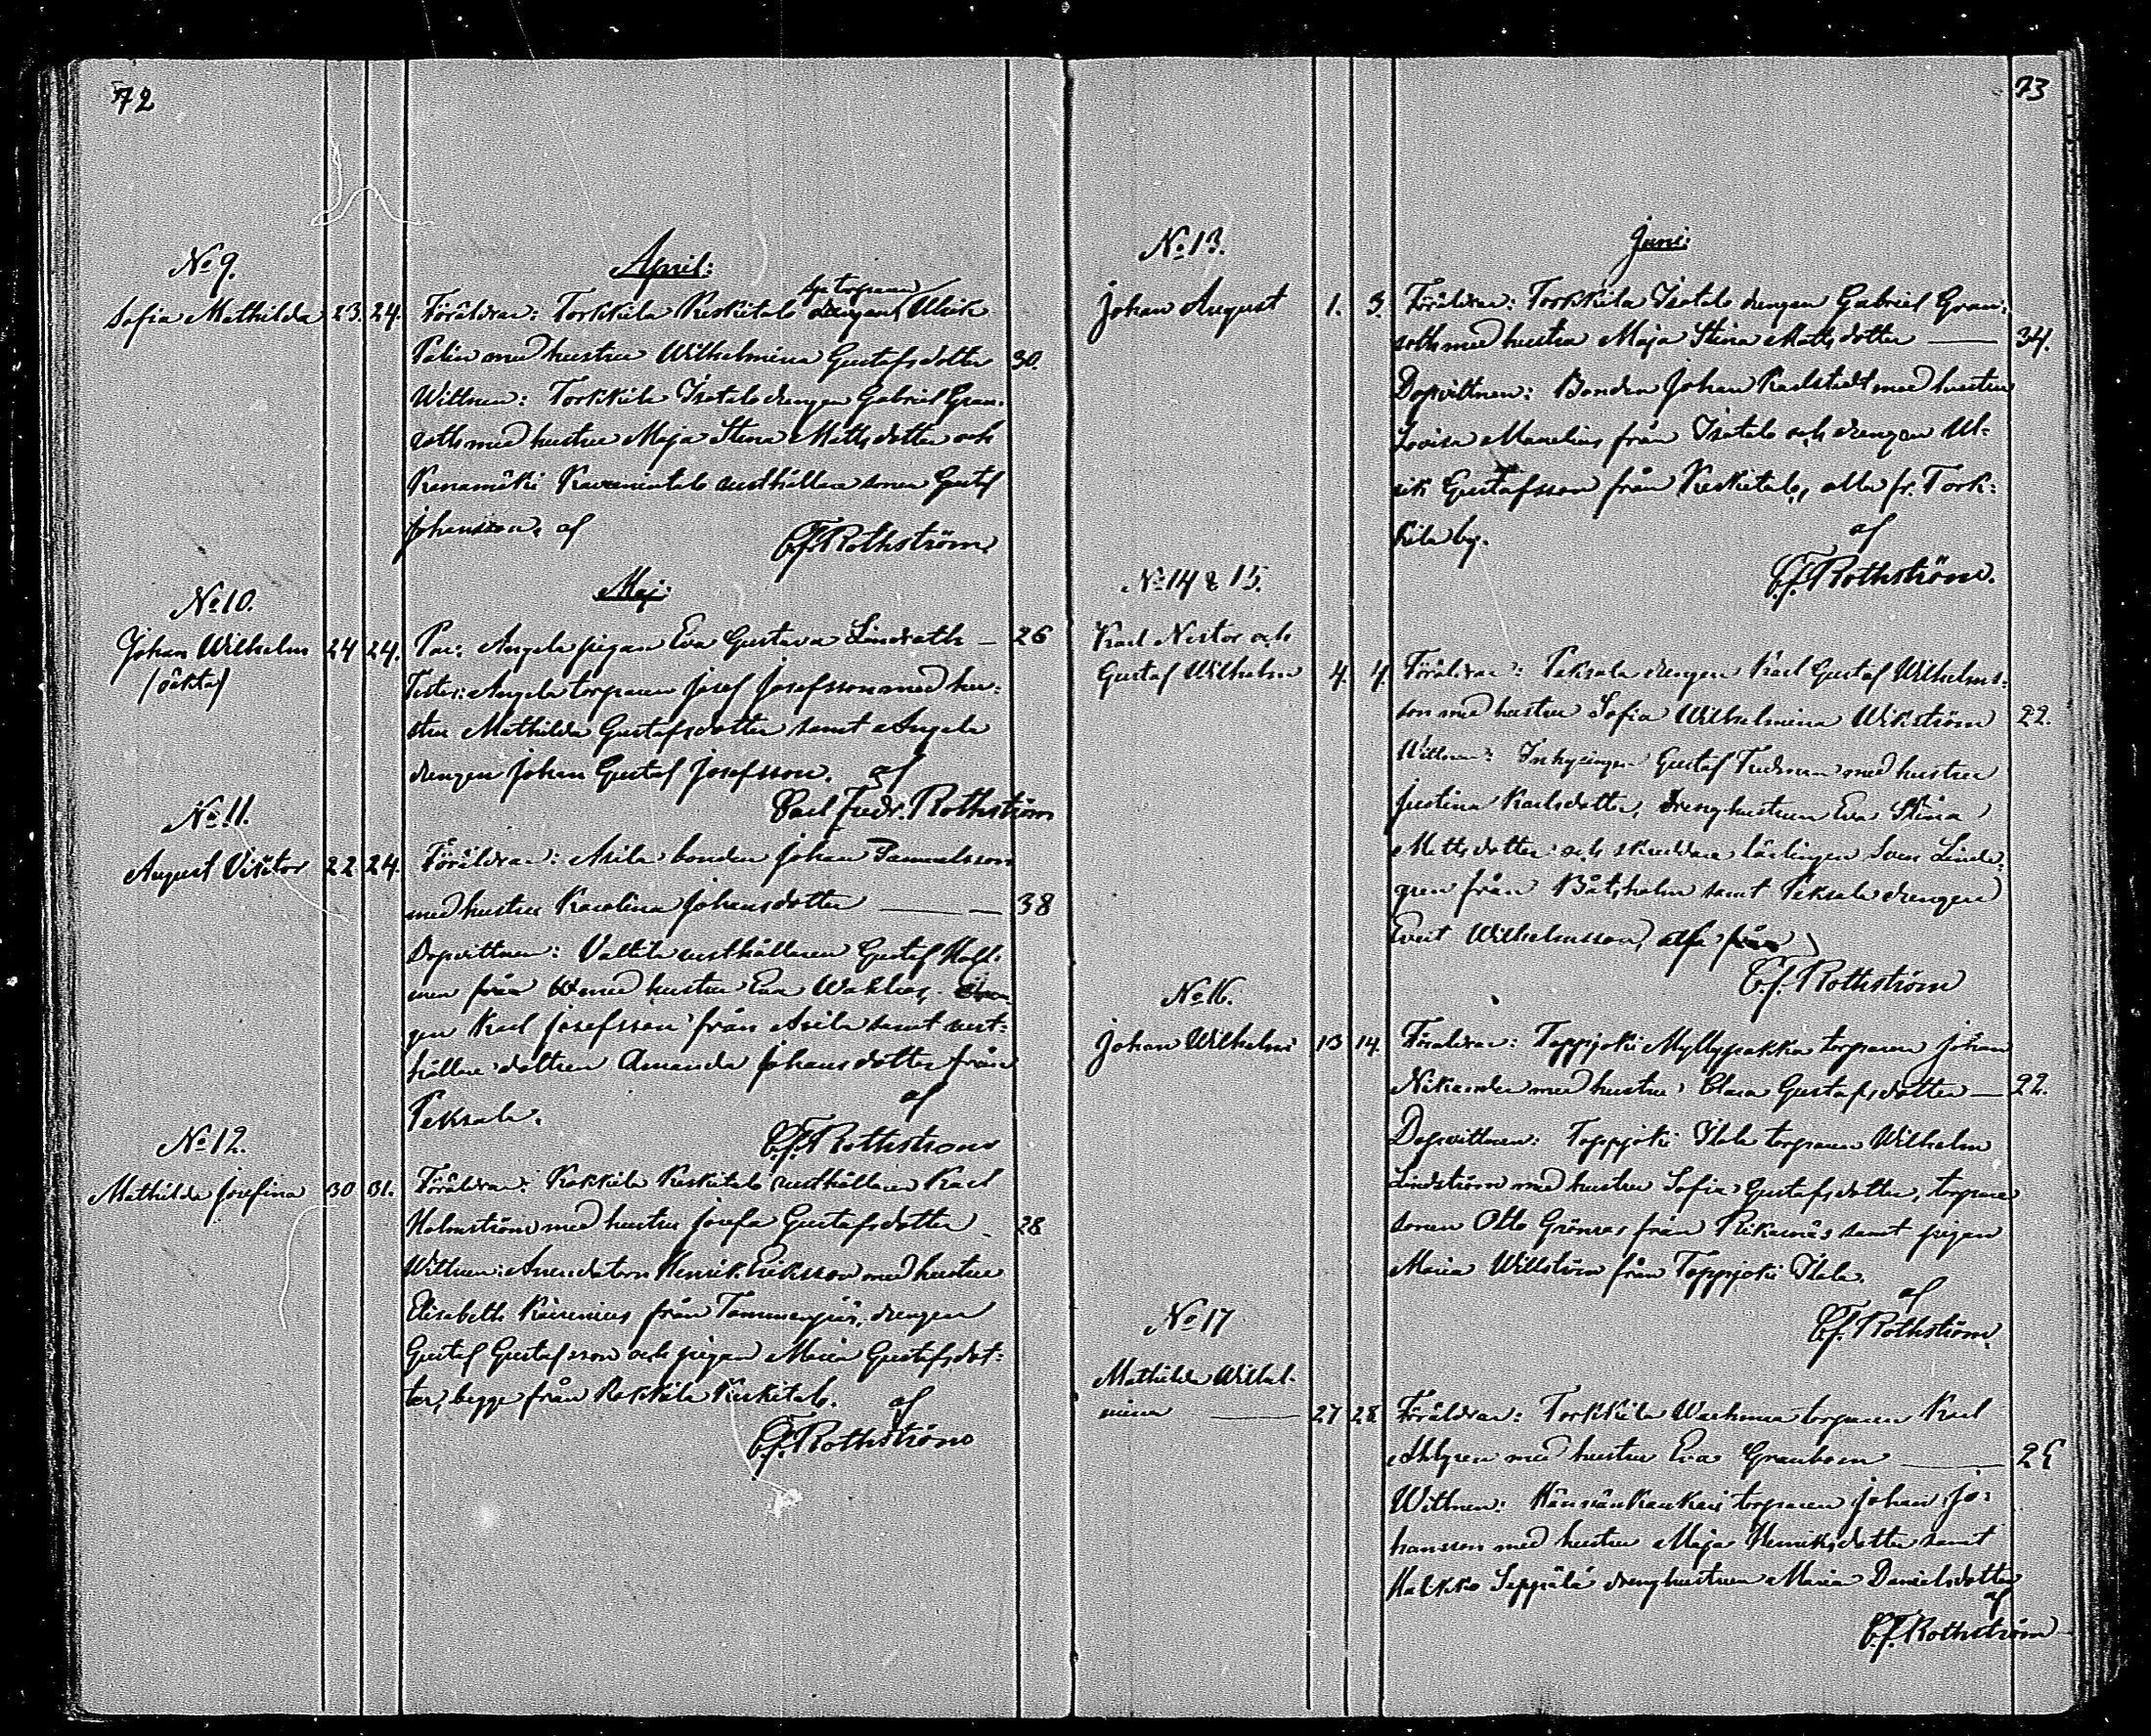 72
No 9.
April:
Sofia Mathilda 23. 24. Föräldrar: Torkkila Keskitalo drengen sp torparen Ulrik
Palin med hustru Wilhelmina Gustafsdotter 30.
Wittnen: Torkkila Isotalo drengen Gabriel Gran-
roth med hustru Maja Stina Mattsdotter och
rusthållare sonen Gustaf
Johansson. af
C.f. Rothström.
Maj:
No 10.
Johan Wilhelm 24 24. Par: Angela pigan Eva Gustava Lindroth — 26
(oäkta)
Testes: Angela torparen Josef Josefsson med hu-
stru Mathilda Gustafsdotter samt Angela
drengen Johan Gustaf Josefsson. af
Carl Fredr. Rothström
No 11.
August Viktor 22 24. Föräldrar: Anila bonden Johan Samuelsson
med hustru Karolina Johansdotter — — 38
Dopvittnen: Valtila rusthållaren Gustaf
från med hustru Eva
gen Karl Josefsson från Anila samt rust-
hållare dottren Amanda Johansdotter från
Peksala.
af
C.f. Rothström
No 12.
Mathilda Josefina 30 31. Föräldrar: Kokkila Keskitalo rusthållaren Karl
Holmström med hustru Josefa Gustafsdotter - 28
Wittnen: Arendatorn Henrik Eriksson med hustru
Elisabeth från drengen
Gustaf Gustafsson och pigan Maria Gustafsdot-
ter, begge från Kokkila Keskitalo.
af
C.f. Rothström
73
No 13.
Juni:
Johan August 1. 3. Föräldrar: Torkkila Isotalo drengen Gabriel Gran-
roth med hustru Maja Stina Mattsdotter — 34.
Dopvittnen: Bonden Johan Karlstedt med hustru
Lovisa Manelius från Isotalo och drengen Ul-
rik Gustafsson från Keskitalo, alla fr. Tork-
kila by.
af
C.f. Rothström.
No 14 & 15.
Karl Nestor och
Gustaf Wilhelm 4. 4. Föräldrar: Peksala drengen Karl Gustaf Wilhelms-
son med hustru Sofia Wilhelmina Wikström 22.
Wittnen: Inhysingen Gustaf med hustru
Justina Karlsdotter, drenghustrun Eva Stina
Mattsdotter och skreddare lärlingen Sven Lind-
gren från Båtsholm samt Peksala drengen
Evert Wilhelmsson, alla från
C.f. Rothström
No 16.
Johan Wilhelm 13 14. Föräldrar: Toppjoki Myllypakka torparen Johan
Nikander med hustru Clara Gustafsdotter — 22.
Dopvittnen: Toppjoki Ilola torparen Wilhelm
Lindström med hustru Sofia Gustafsdotter, torpare
sonen Otto Grönros från samt pigan
Maria Willström från Toppjoki Ilola.
af
C.f. Rothström.
No 17
Mathilda Wilhel-
mina — 27 28. Föräldrar: Torkkila torparen Karl
Ahlgren med hustru Eva Granbom —
Wittnen: torparen Johan Jo-
hansson med hustru Maja Henriksdotter samt
Seppälä drenghustrun Maria Danielsdotter
af
C.f. Rothström